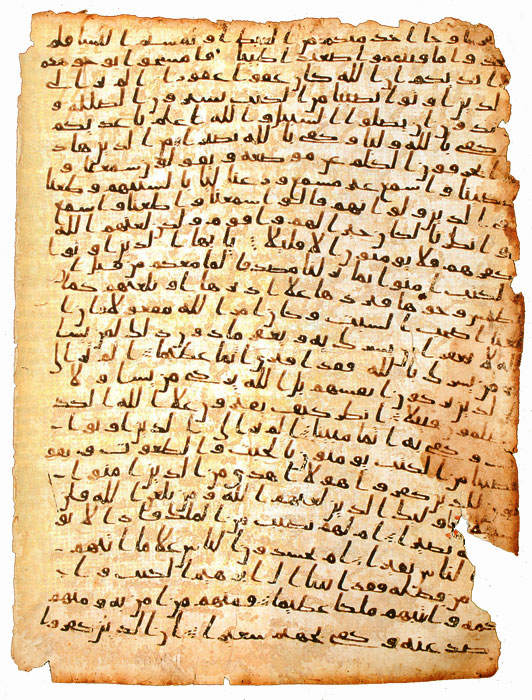 سفر او جا احد منكم من الغيط او لمستم النسا فلم
تجدوا ما فتيمموا صعيدا طيبا فامسحوا بوجوهكم
وايديكم ان الله كان عفوا غفورا الم تر الى
الذين اوتوا نصيبا من الكتب يشترون الضللة و
يريدون ان تضلوا السبيل والله اعلم باعدىكم
وكفى بالله وليا وكفى بالله نصيرا من الذين هاد
وا يحرفون الكلم عن موضعه ويقولون سمعنا و
عصينا واسمع غير مسمع ورعنا ليا بالسنتهم وطعنا
في الدين ولو انهم قالوا سمعنا واطعنا واسمع
وانظرنا لكان خيرا لهم واقوم ولكن لعنهم الله
بكفرهم فلا يومنون الا قليلا يايها الذين اوتوا
الكتب امنوا بما نزلنا مصدقا لما معكم من قبل ا
ن نطمس وجوها فنردها على ادبرها او نلعنهم كما
لعنا اصحب السبت وكان امر الله مفعولا ان ا
لله لا يغفر ان يشرك به ويغفر ما دون ذلك لمن يشا
ومن يشرك بالله فقد افترى اثما عظيما الم تر الى
الذين يزكون انفسهم بل الله يزكي من يشا ولا
يظلمون فتيلا انظر كيف يفترون على الله الكذ
ب وكفى به اثما مبينا الم تر الى الذين اوتوا
نصيبا من الكتب يومنون بالجبت والطغوت ويقو
لون للذين كفروا هولا اهدى من الذين امنوا
سبيلا اوليك الذين لعنهم الله ومن يلعن الله فلن
تجد له نصيرا ام لهم نصيب من الملك فاذا لا يو
تون الناس نقيرا ام يحسدون الناس على ما اتيهم
الله من فضله فقد اتينا ال ابرهيم الكتب وا
لحكمة واتينهم ملكا عظيما فمنهم من امن به ومنهم
من صد عنه وكفى بجهنم سعيرا ان الذين كفروا